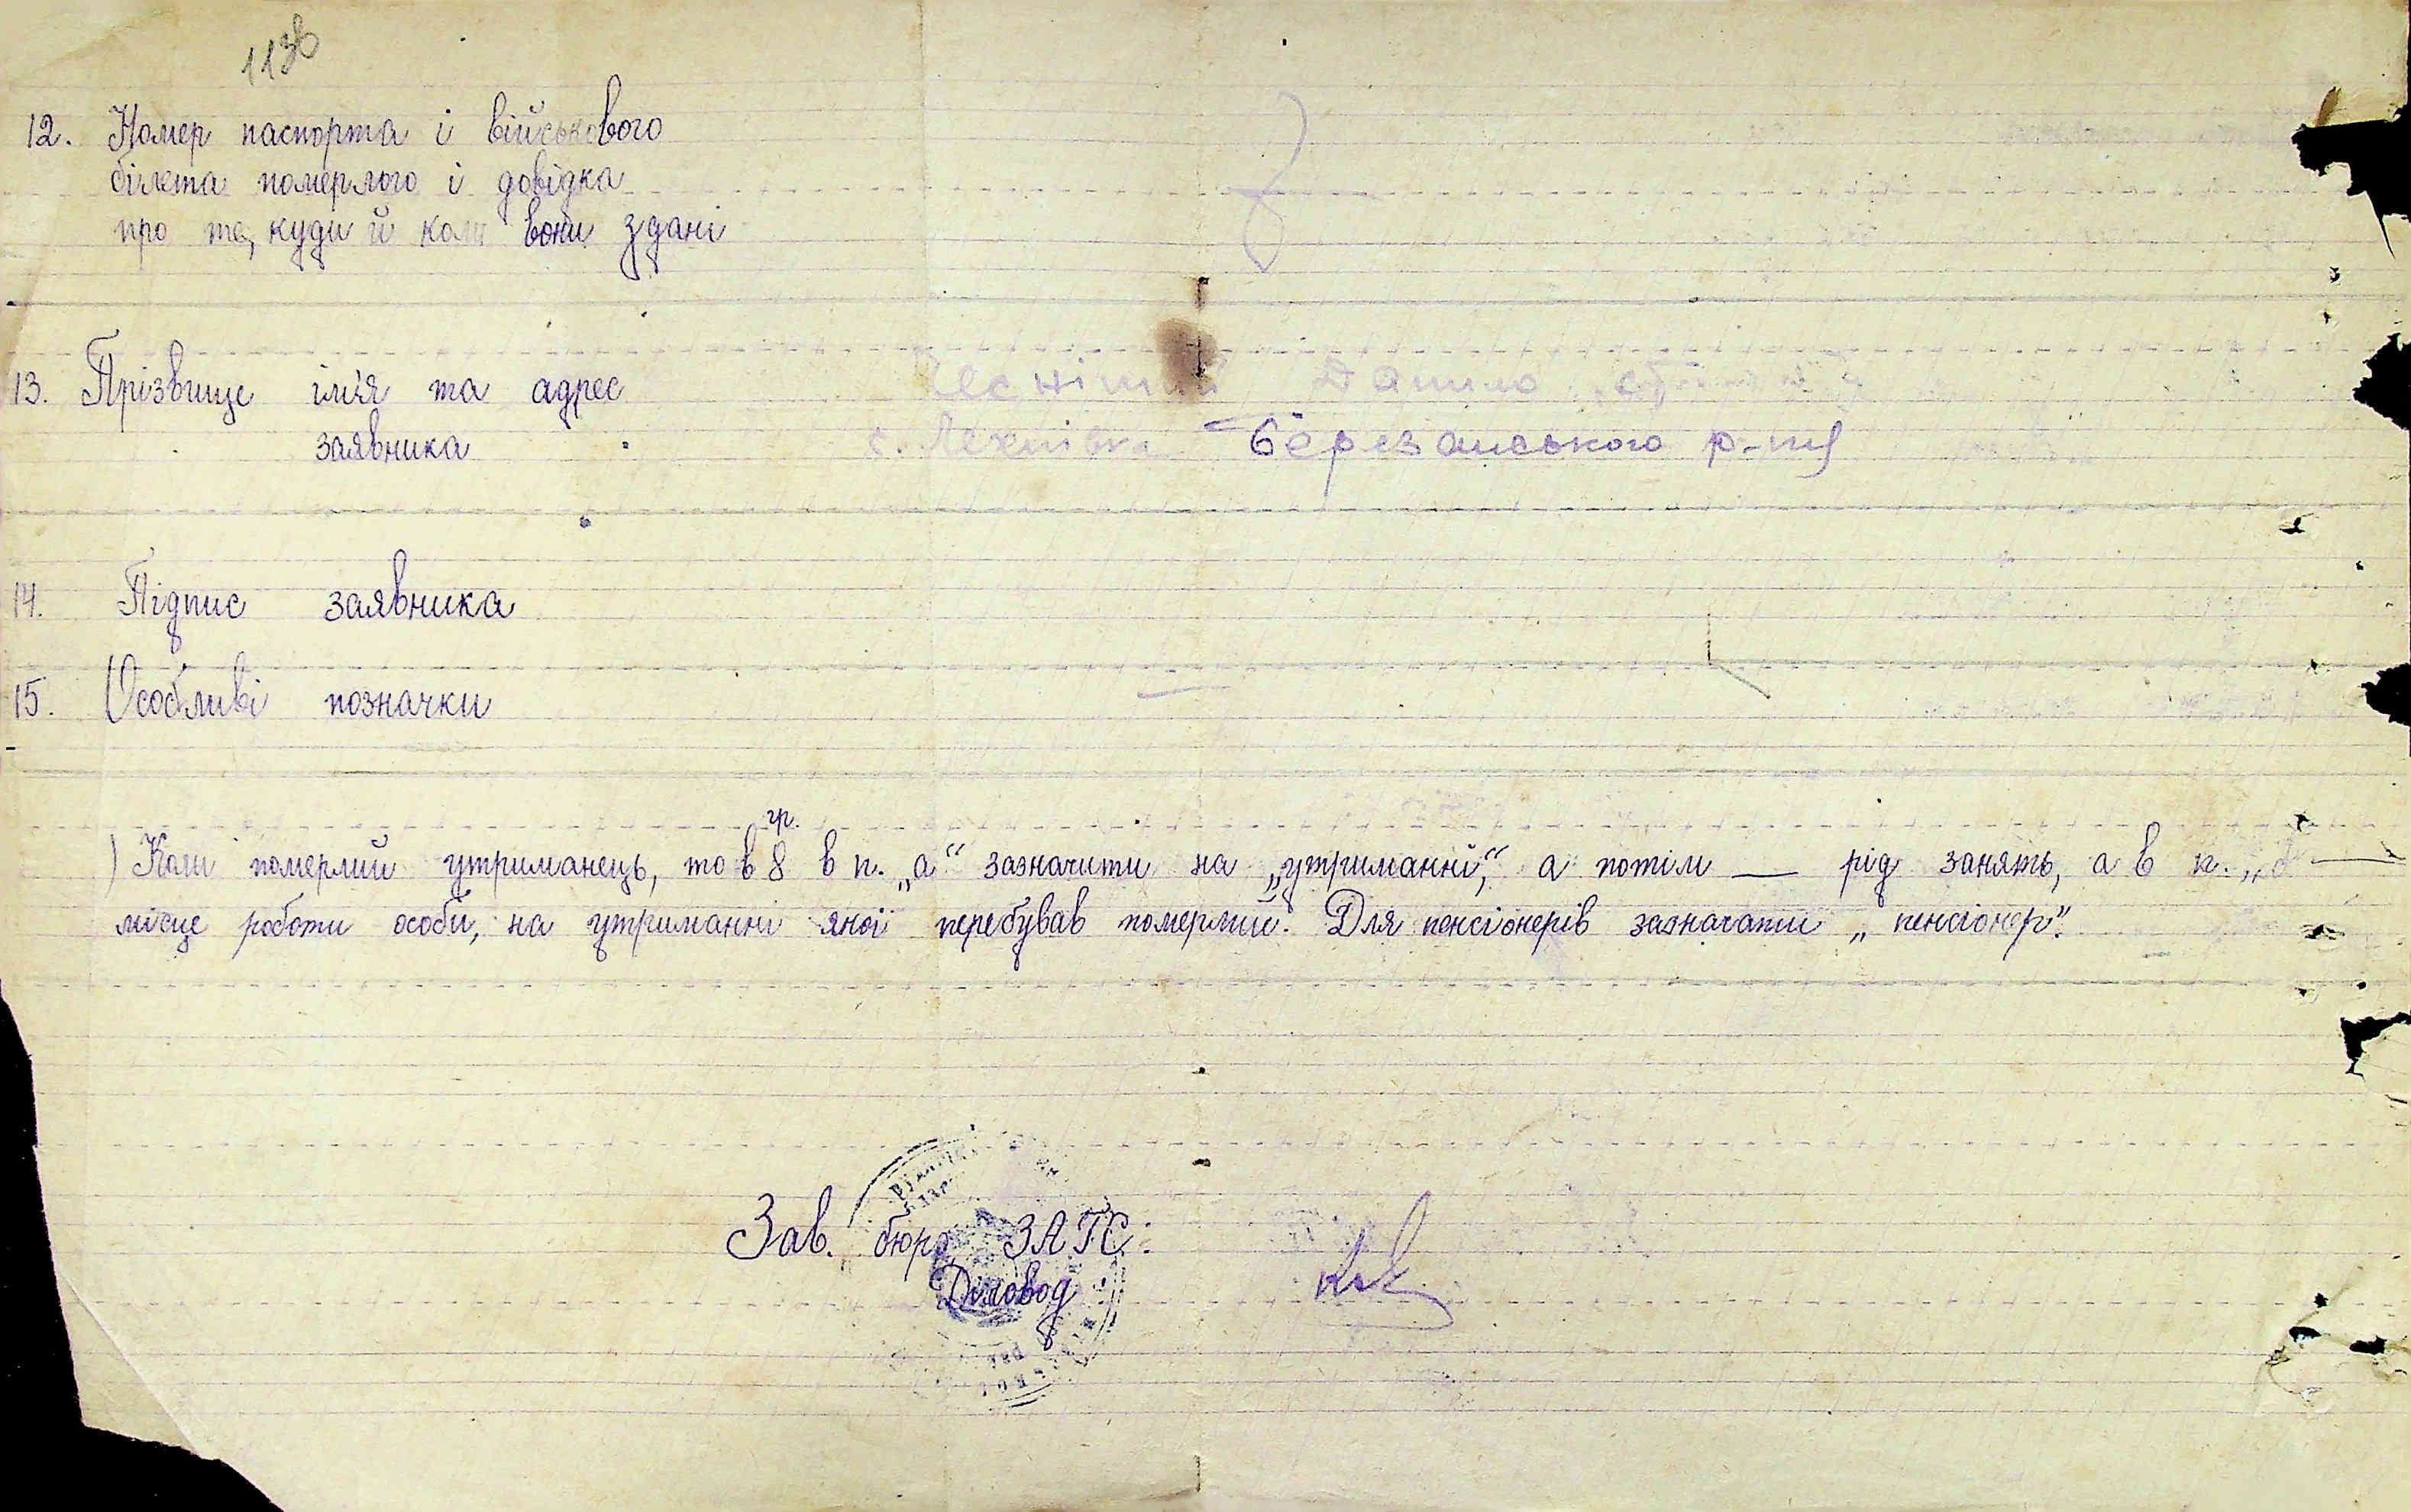 113б
12. Номер паспорта і військового
білета померлого і довідка
про те, куди й коли вони здані
13. Прізвище ім'я та адрес Данило
заявника с. Лехнівка Березанського р-ну
14. Підпис заявника
15. Особливі позначки
гр.
) Коли померлий утриманець, то в 8 в п. „а“ зазначити на „утриманні“, а потім — рід занять, а в п. „б —
місце роботи особи, на утриманні якої перебував померлий. Для пенсіонерів зазначати „пенсіонер”.
Зав. бюро ЗАГС:
Діловод